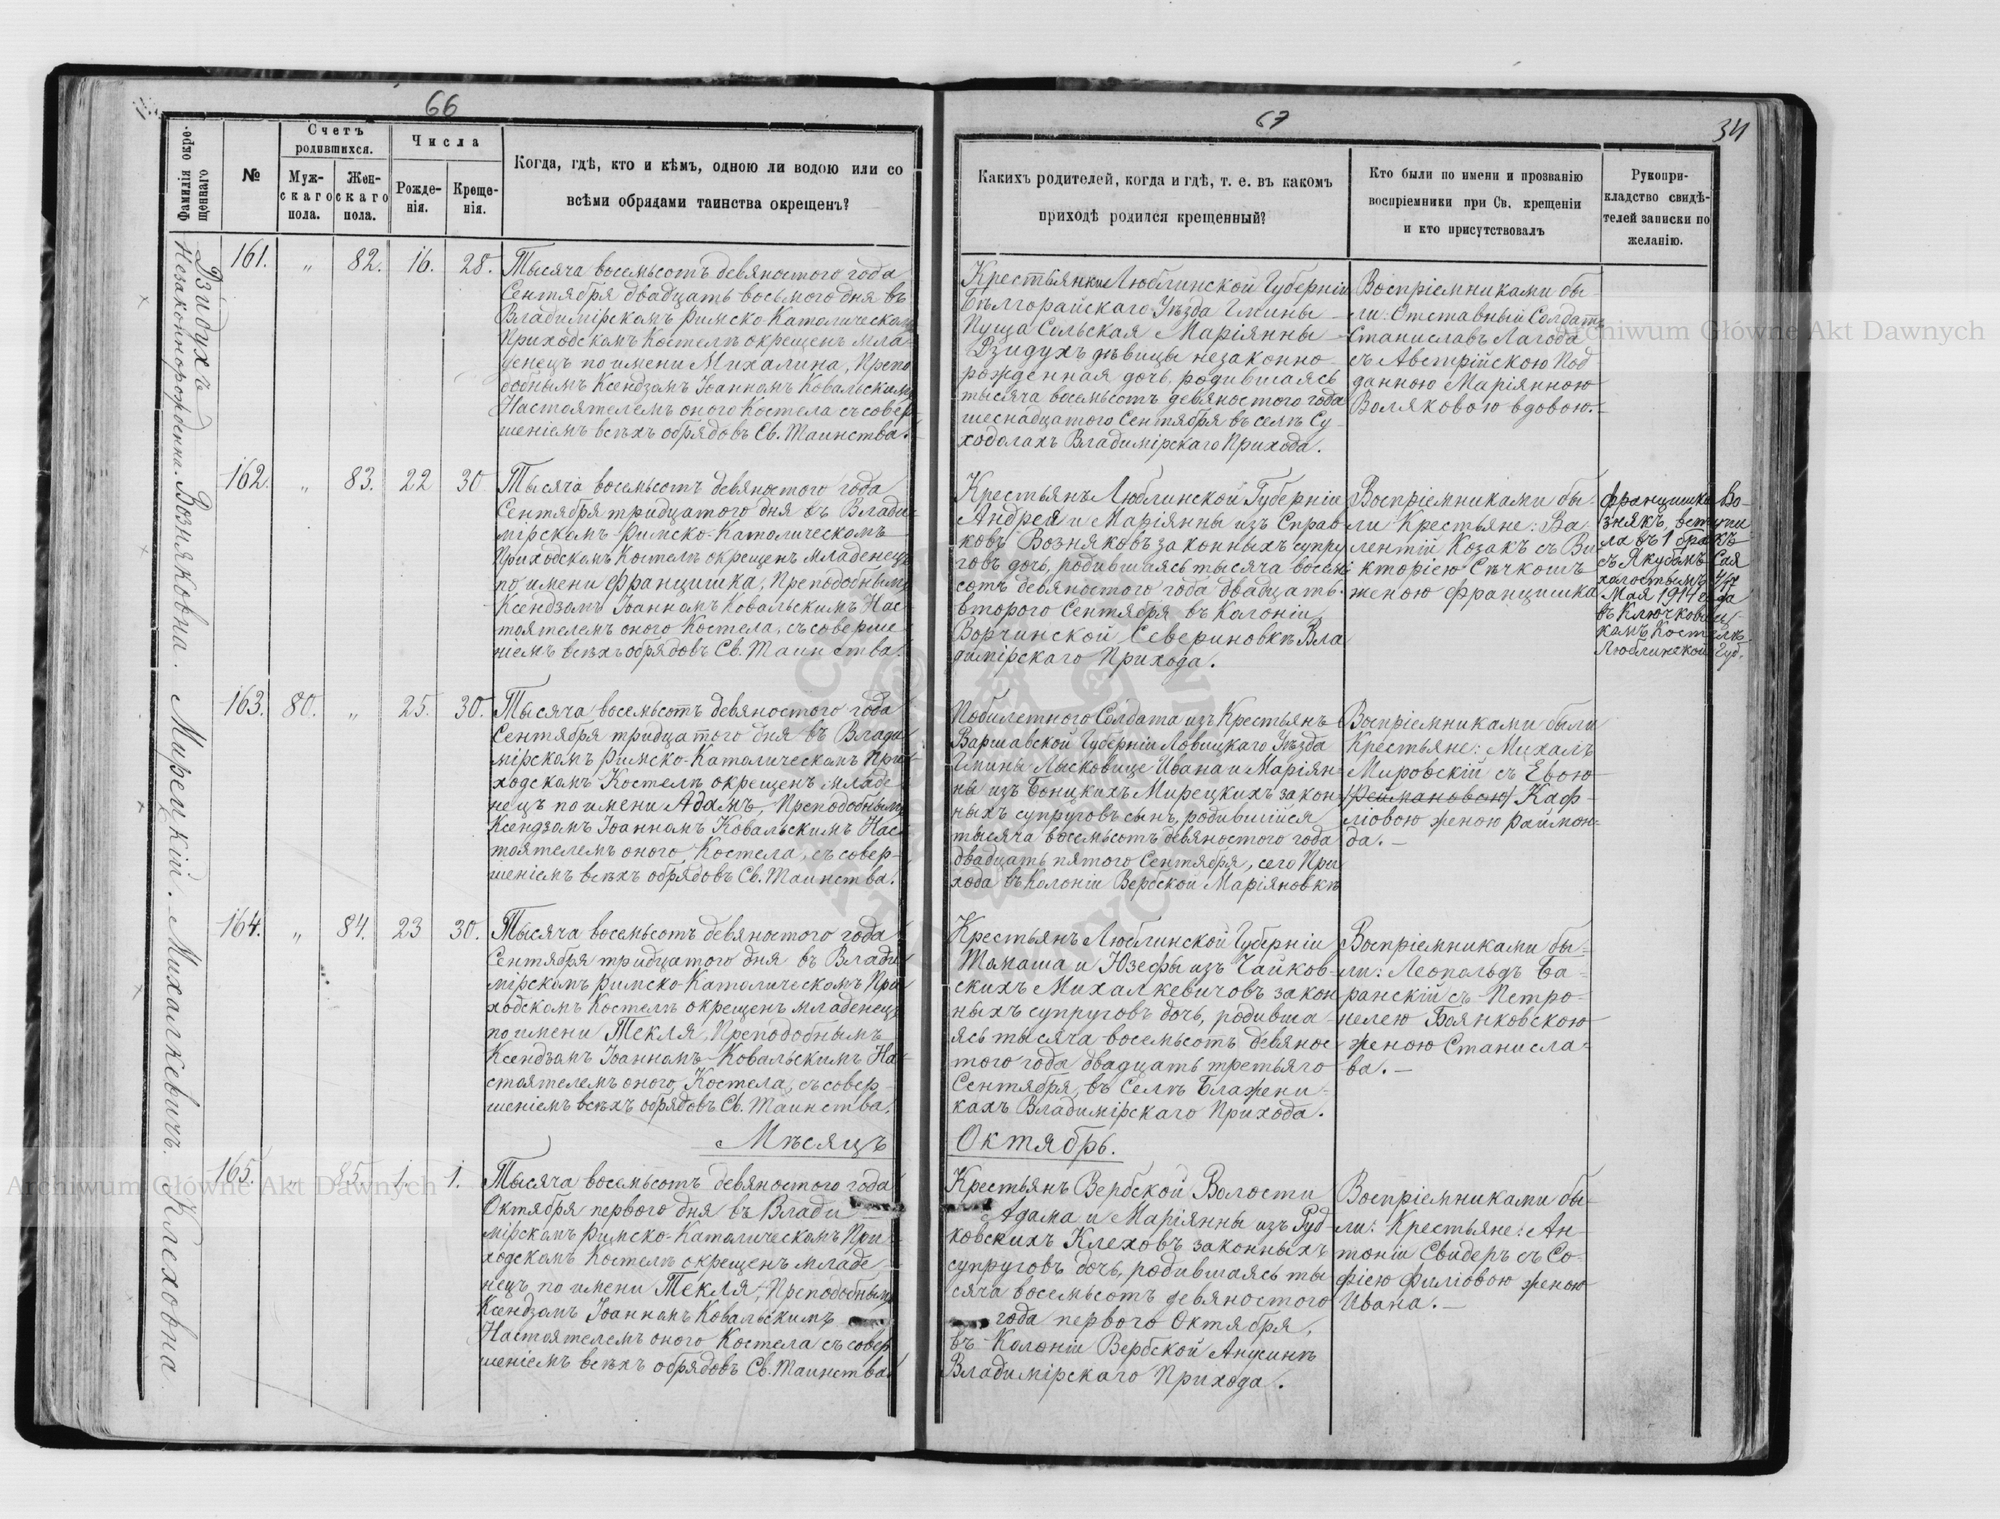 66
Фамилія окре-
щеннаго
№
Счетъ
родившихся.
Муж-
скаго
пола.
Жен-
скаго
пола.
Числа
Рожде-
нія.
Креще-
нія.
Когда, гдѣ, кто и кѣмъ, одною ли водою или со
всѣми обрядами таинства окрещенъ?
Дзидухъ
Незаконнорожденна.
161. „ 82. 16. 28.
Тысяча восемьсотъ девяностого года
Сентября двадцать восьмого дня въ
Владимірскомъ Римско-Католическомъ
Приходскомъ Костелѣ окрещенъ мла-
денецъ по имени Михалина, Препо-
добнымъ Ксендзомъ Іоанномъ Ковальскимъ
Настоятелемъ оного Костела съ совер-
шеніемъ всѣхъ обрядовъ Св. Таинства.
Возняковна.
162. „ 83. 22 30
Тысяча восемьсотъ девяностого года
Сентября тридцатого дня въ Влади-
мірскомъ Римско-Католическомъ
Приходскомъ Костелѣ окрещенъ младенецъ
по имени Францишка, Преподобнымъ
Ксендзомъ Іоанномъ Ковальскимъ Нас-
тоятелемъ оного Костела, съ соверше-
ніемъ всѣхъ обрядовъ Св. Таинства.
Мирецкій.
163. 80. „ 25. 30.
Тысяча восемьсотъ девяностого года
Сентября тридцатого дня въ Влади-
мірскомъ Римско-Католическомъ При-
ходскомъ Костелѣ окрещенъ младе-
нецъ по имени Адамъ, Преподобнымъ
Ксендзомъ Іоанномъ Ковальскимъ Нас-
тоятелемъ оного Костела, съ совер-
шеніемъ всѣхъ обрядовъ Св. Таинства.
Михалкевичъ.
164. „ 84. 23 30.
Тысяча восемьсотъ девяностого года
Сентября тридцатого дня въ Влади-
мірскомъ Римско-Католическомъ При-
ходскомъ Костелѣ окрещенъ младенецъ
по имени Текля, Преподобнымъ
Ксендзомъ Іоанномъ Ковальскимъ На-
стоятелемъ оного Костела, съ совер-
шеніемъ всѣхъ обрядовъ Св. Таинства.
Мѣсяцъ
Клеховна
165. „ 85. 1. 1.
Тысяча восемьсотъ девяностого года
Октября первого дня въ Влади-
мірскомъ Римско-Католическомъ При-
ходскомъ Костелѣ окрещенъ младе-
нецъ по имени Текля, Преподобнымъ
Ксендзомъ Іоанномъ Ковальскимъ
Настоятелемъ оного Костела съ совер-
шеніемъ всѣхъ обрядовъ Св. Таинства.
67
34
Какихъ родителей, когда и гдѣ, т. е. въ какомъ
приходѣ родился крещенный?
Кто были по имени и прозванію
воспріемники при Св. крещеніи
и кто присутствовалъ
Рукопри-
кладство свидѣ-
телей записки по
желанію.
Крестьянки Люблинской Губерніи
Бѣлгорайскаго Уѣзда Гмины
Пуща Сольская Маріянны
Дзидухъ дѣвицы незаконно
рожденная дочь, родившаясь
тысяча восемьсотъ девяностого года
шеснадцатого Сентября въ селѣ Су-
ходолахъ Владимірскаго Прихода.
Воспріемниками бы-
ли: Отставный Солдатъ
Станиславъ Лагода
съ Австрійскою Под-
данною Маріянною
Воляковою вдовою.
Крестьянъ Люблинской Губерніи
Андрея и Маріянны изъ Справ-
ковъ Возняковъ законныхъ супру-
говъ дочь, родившаясь тысяча восемь-
сотъ девяностого года двадцать
второго Сентября въ Колоніи
Ворчинской Севериновкѣ Вла-
димірскаго Прихода.
Воспріемниками бы-
ли Крестьяне: Ва-
лентій Козакъ съ Ви-
кторіею Сѣчкошъ
женою Францишка
Францишка Во-
знякъ, вступи-
ла въ 1 бракъ
съ Якубомъ Сая
холостымъ 4/17
Мая 1911 года
въ Ключкови-
комъ Костелѣ
Люблинской Губ.
Побилетного Солдата изъ Крестьянъ
Варшавской Губерніи Ловицкаго Уѣзда
Гмины Лысковице Ивана и Маріян-
ны изъ Боницкихъ Мирецкихъ закон-
ныхъ супруговъ сынъ, родившійся
тысяча восемьсотъ девяностого года
двадцать пятого Сентября, сего При-
хода въ Колоніи Вербской Маріяновкѣ
Воспріемниками были
Крестьяне: Михалъ
Мировскій съ Евою
/Реймановою/ Каф-
ліовою женою Раймон-
да.
Крестьянъ Люблинской Губерніи
Томаша и Юзефы изъ Чайков-
скихъ Михалкевичовъ закон-
ныхъ супруговъ дочь, родивша-
ясь тысяча восемьсотъ девянос-
того года двадцать третьяго
Сентября, въ Селѣ Блажени-
кахъ Владимірскаго Прихода.
Воспріемниками бы-
ли: Леопольдъ Ба-
ранскій съ Петро-
нелею Боянковскою
женою Станисла-
ва.
Октябрь.
Крестьянъ Вербской Волости
Адама и Маріянны изъ Руд-
ковскихъ Клеховъ законныхъ
супруговъ дочь, родившаясь ты-
сяча восемьсотъ девяностого
года первого Октября,
въ Колоніи Вербской Анусинѣ
Владимірскаго Прихода.
Воспріемниками бы-
ли: Крестьяне: Ан-
тоніи Свидеръ съ Со-
фіею Филіовою женою
Ивана.
Archiwum Główne Akt Dawnych
Archiwum Główne Akt Dawnych